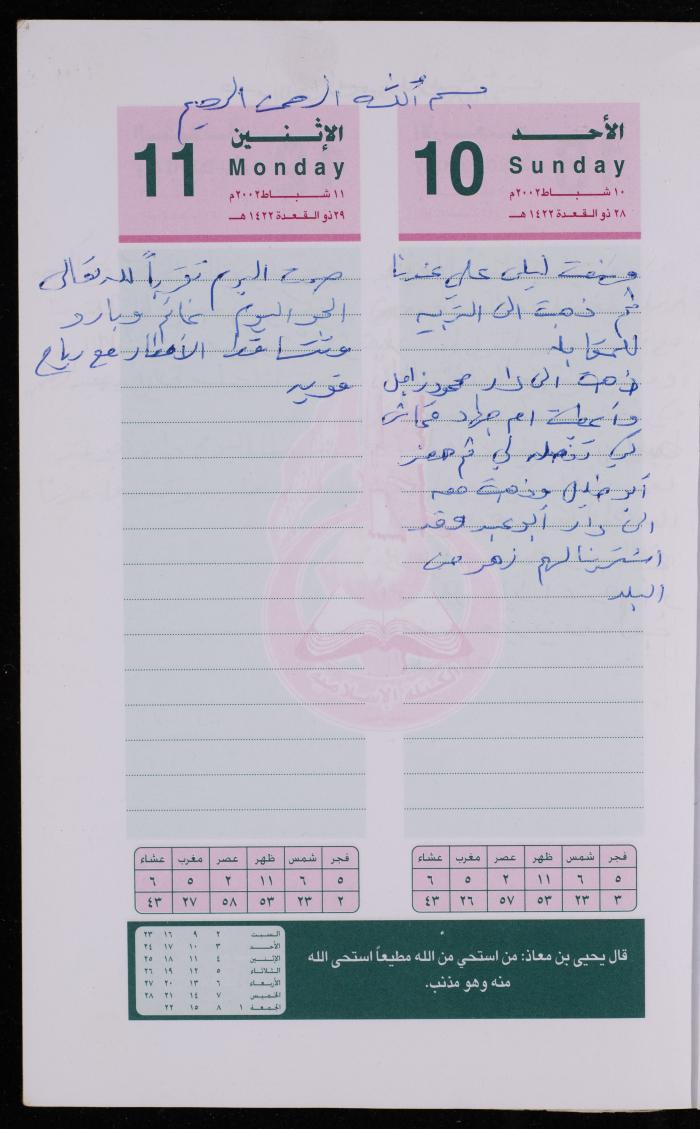 بسم الله الرحمن الرحيم
الأحد
10
Sunday
١٠ شباط ٢٠٠٢م
٢٨ ذو القعدة ١٤٢٢ هـ
ليلى على عندنا
ثم ذهبت الى التربيه
للمقابله
ذهبت الى دار محمود زامل
وأعطيت ام جهاد قماش
لكي تفصله لي ثم حضر
أبو خليل وذهبت معه
الى دار أبو عبيد وقد
اشترينا لهم زهر من
البلد
الإثنين
11
Monday
١١ شباط ٢٠٠٢م
٢٩ ذو القعدة ١٤٢٢ هـ
صمت اليوم تقرباً لله تعالى
الجو اليوم غائم وبارد
وتتساقط الأمطار مع رياح
قويه
الكتلة الإسلامية
فجر شمس ظهر عصر مغرب عشاء
٥ ٦ ١١ ٢ ٥ ٦
٣ ٢٣ ٥٣ ٥٧ ٢٦ ٤٣
فجر شمس ظهر عصر مغرب عشاء
٥ ٦ ١١ ٢ ٥ ٦
٢ ٢٣ ٥٣ ٥٨ ٢٧ ٤٣
قال يحيى بن معاذ: من استحي من الله مطيعاً استحى الله
منه وهو مذنب.
السبت ٢ ٩ ١٦ ٢٣
الأحد ٣ ١٠ ١٧ ٢٤
الإثنين ٤ ١١ ١٨ ٢٥
الثلاثاء ٥ ١٢ ١٩ ٢٦
الأربعاء ٦ ١٣ ٢٠ ٢٧
الخميس ٧ ١٤ ٢١ ٢٨
الجمعة ١ ٨ ١٥ ٢٢